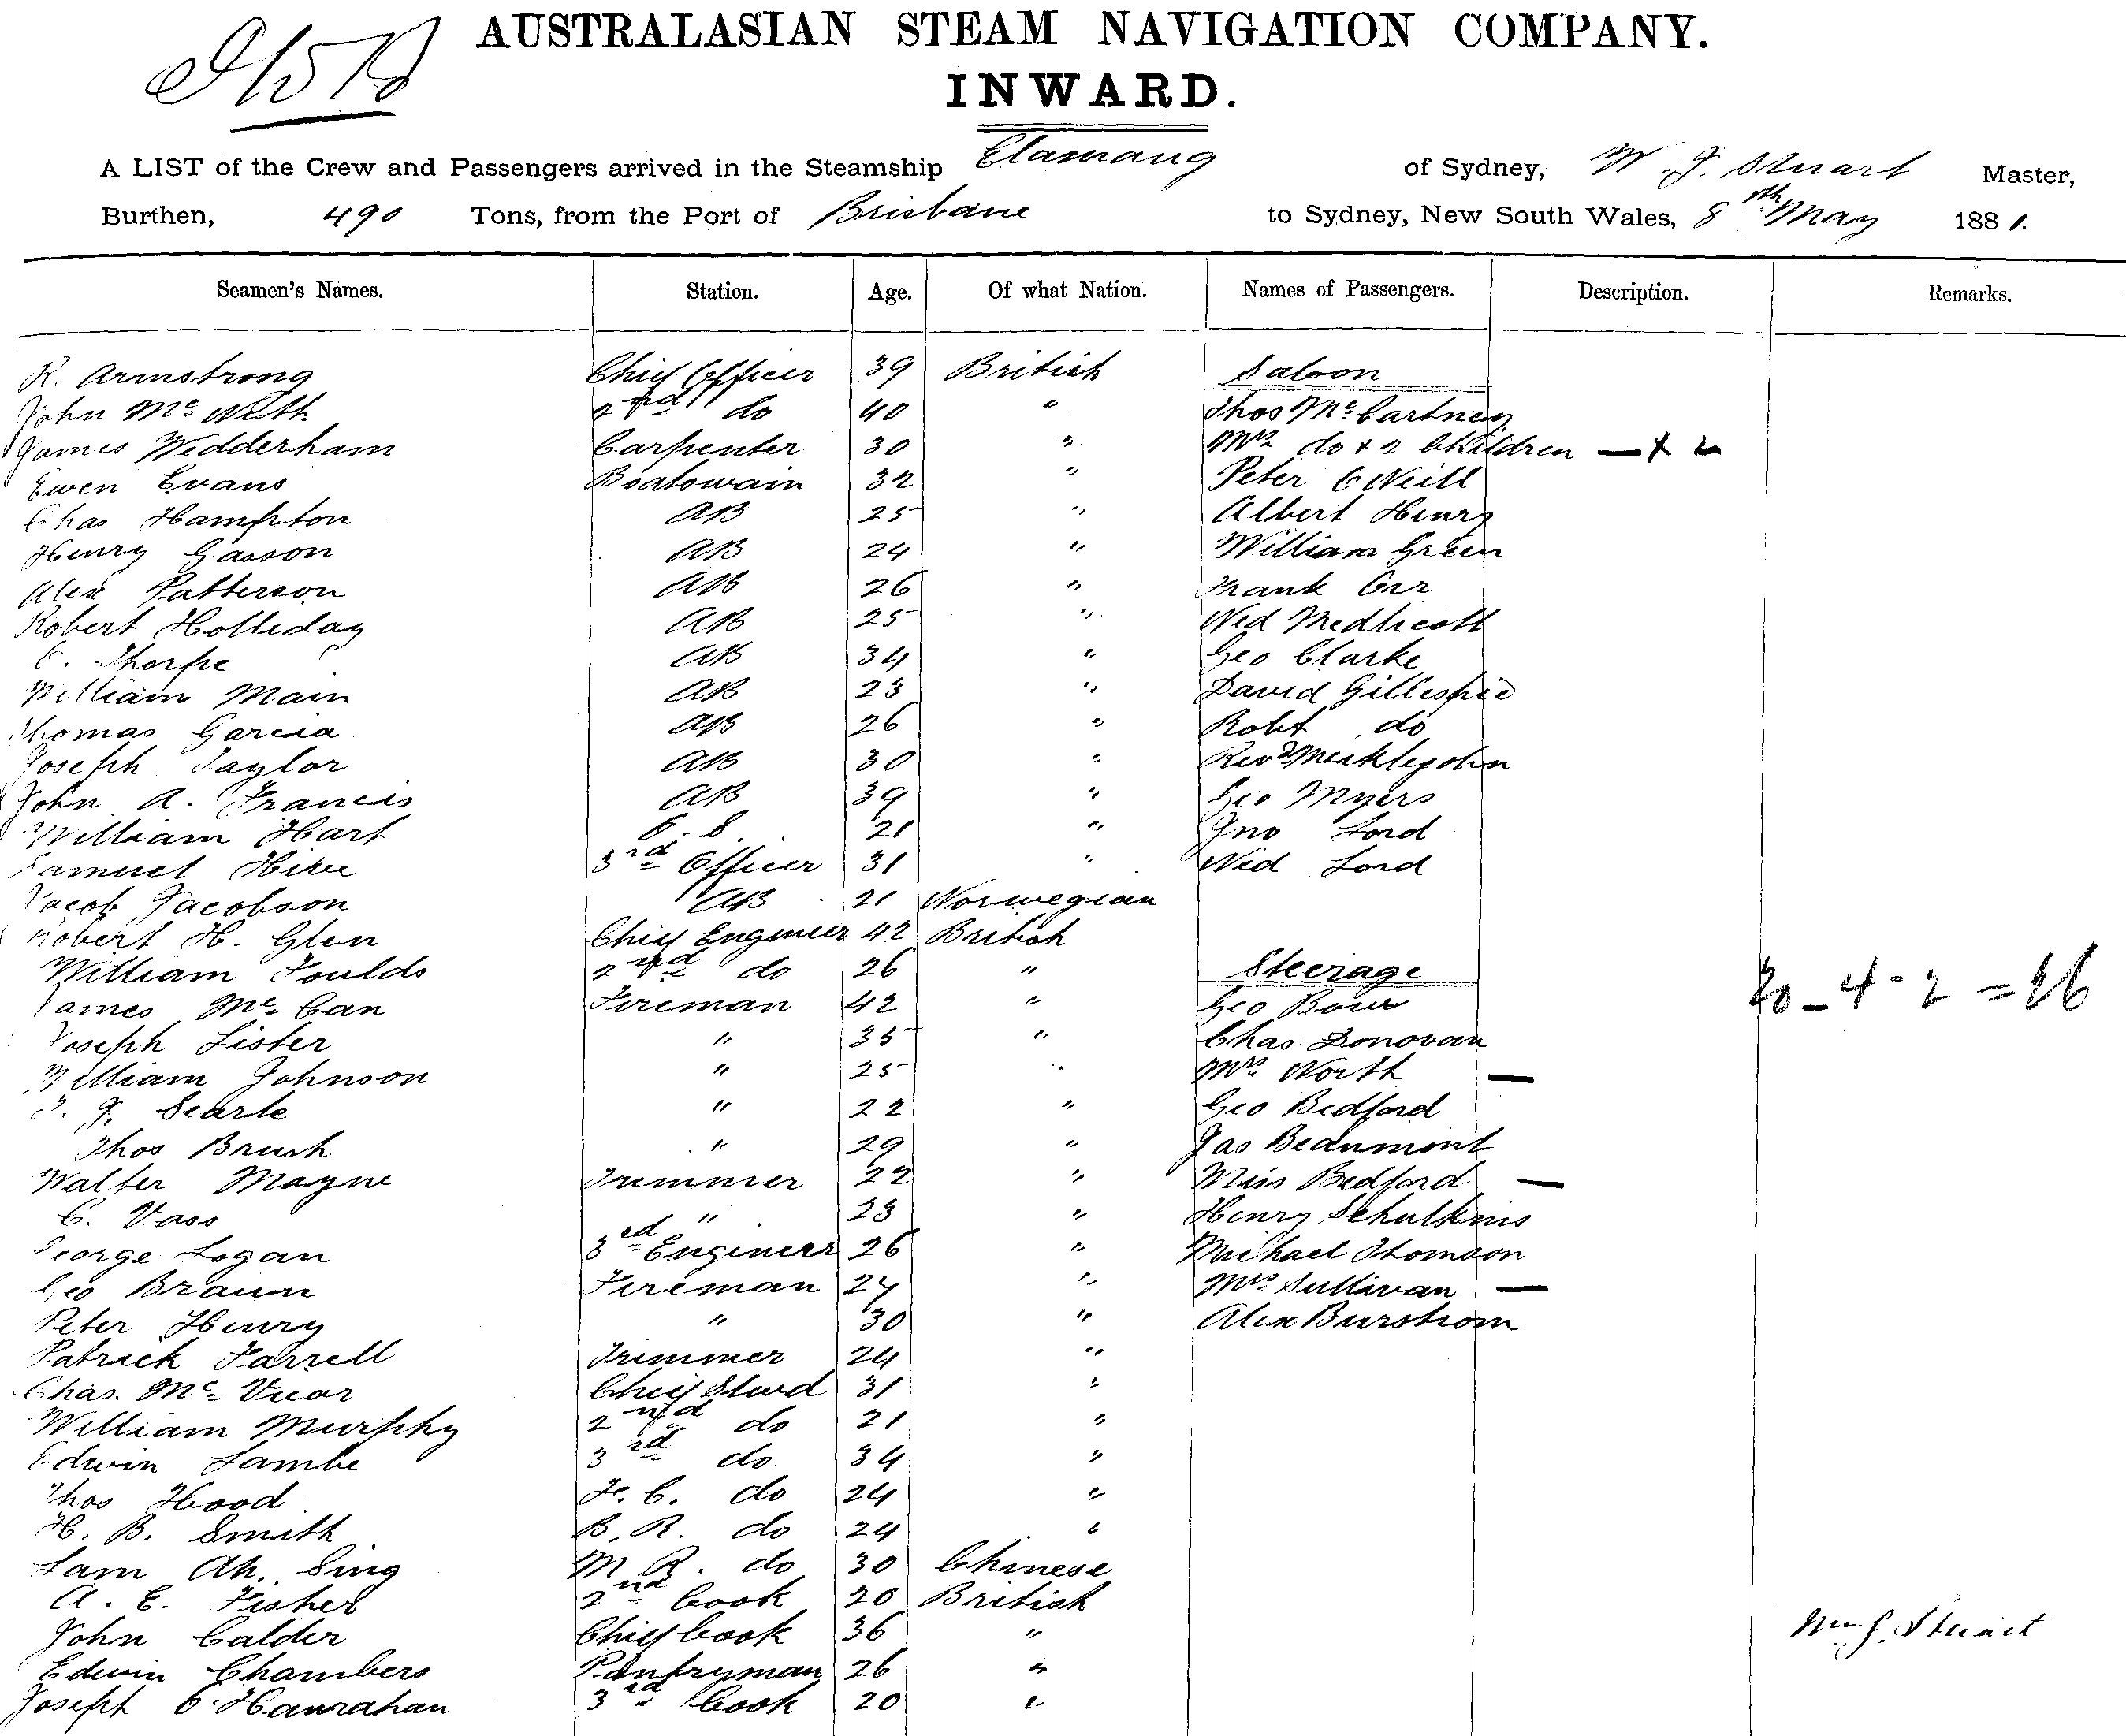 AUSTRALASIAN STEAM NAVIGATION COMPANY.
INWARD.
A LIST of the Crew and Passengers arrived in the Steamship Elamang of Sydney, W. J. Stuart Master,
Burthen, 490 Tons, from the Port of Brisbane to Sydney, New South Wales, 8th May 1881.
Seamen's Names. Station. Age. Of what Nation. Names of Passengers. Description. Remarks.
R. Armstrong Chief Officer 39 British Saloon
John Mc 2nd do 40 " Thos McCartney
James Wedderham Carpenter 30 " Mrs do + 2 Children — x 2
Ewen Evans Boatswain 32 " Peter O'Neill
Chas Hampton AB 25 " Albert Henry
Henry Gasson AB 24 " William Green
Alex Patterson AB 26 " Frank Orr
Robert Holliday AB 25 " Ned Medlicott
C. Thorpe AB 34 " Geo Clarke
William Main AB 23 " David Gillespie
Thomas Garcia AB 26 " Robt do
Joseph Taylor AB 30 " Revd Meiklejohn
John A. Francis AB 39 " Geo Myers
William Hart O.S. 21 " Jno Lord
Samuel 3rd Officer 31 " Ned Lord
Jacob Jacobson AB 21 Norwegian
Robert H. Glen Chief Engineer 42 British
William Foulds 2nd do 26 " Steerage
James McCan Fireman 42 " Geo 20 - 4 - 2 = 26
Joseph Lister " 35 " Chas Donovan
William Johnson " 25 " Mrs North —
J. Searle " 22 " Geo Bedford
Thos Brush " 29 " Jas Beaumont
Walter Mayne Trimmer 22 " Miss Bedford —
C. Vass " 23 " Henry
George Logan 3rd Engineer 26 " Michael Thomson
Geo Braun Fireman 24 " Mrs Sullivan —
Peter Henry " 30 " Alex Burstrom
Patrick Farrell Trimmer 24 "
Chas. McVicar Chief Stwd 31 "
William Murphy 2nd do 21 "
Edwin Lambe 3rd do 34 "
Thos Hood F.C. do 24 "
H. B. Smith B.R. do 24 "
Lam Ah. Sing M.R. do 30 Chinese
A. E. Fisher 2nd Cook 20 British
John Calder Chief Cook 36 " Wm J. Stuart
Edwin Chambers Pantryman 26 "
Joseph O'Hanrahan 3rd Cook 20 "